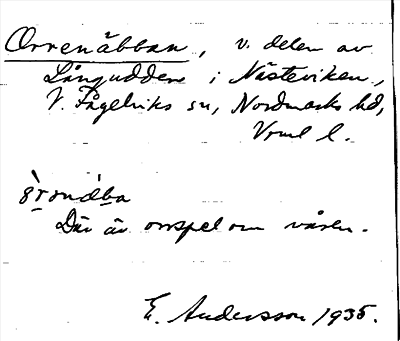 Orrenäbban, v. delen av
Långuddene i Nästeviken,
V. Fågelviks sn, Nordmarks hd,
Vrml l.
Där är orrspel om våren.
E. Andersson 1935.